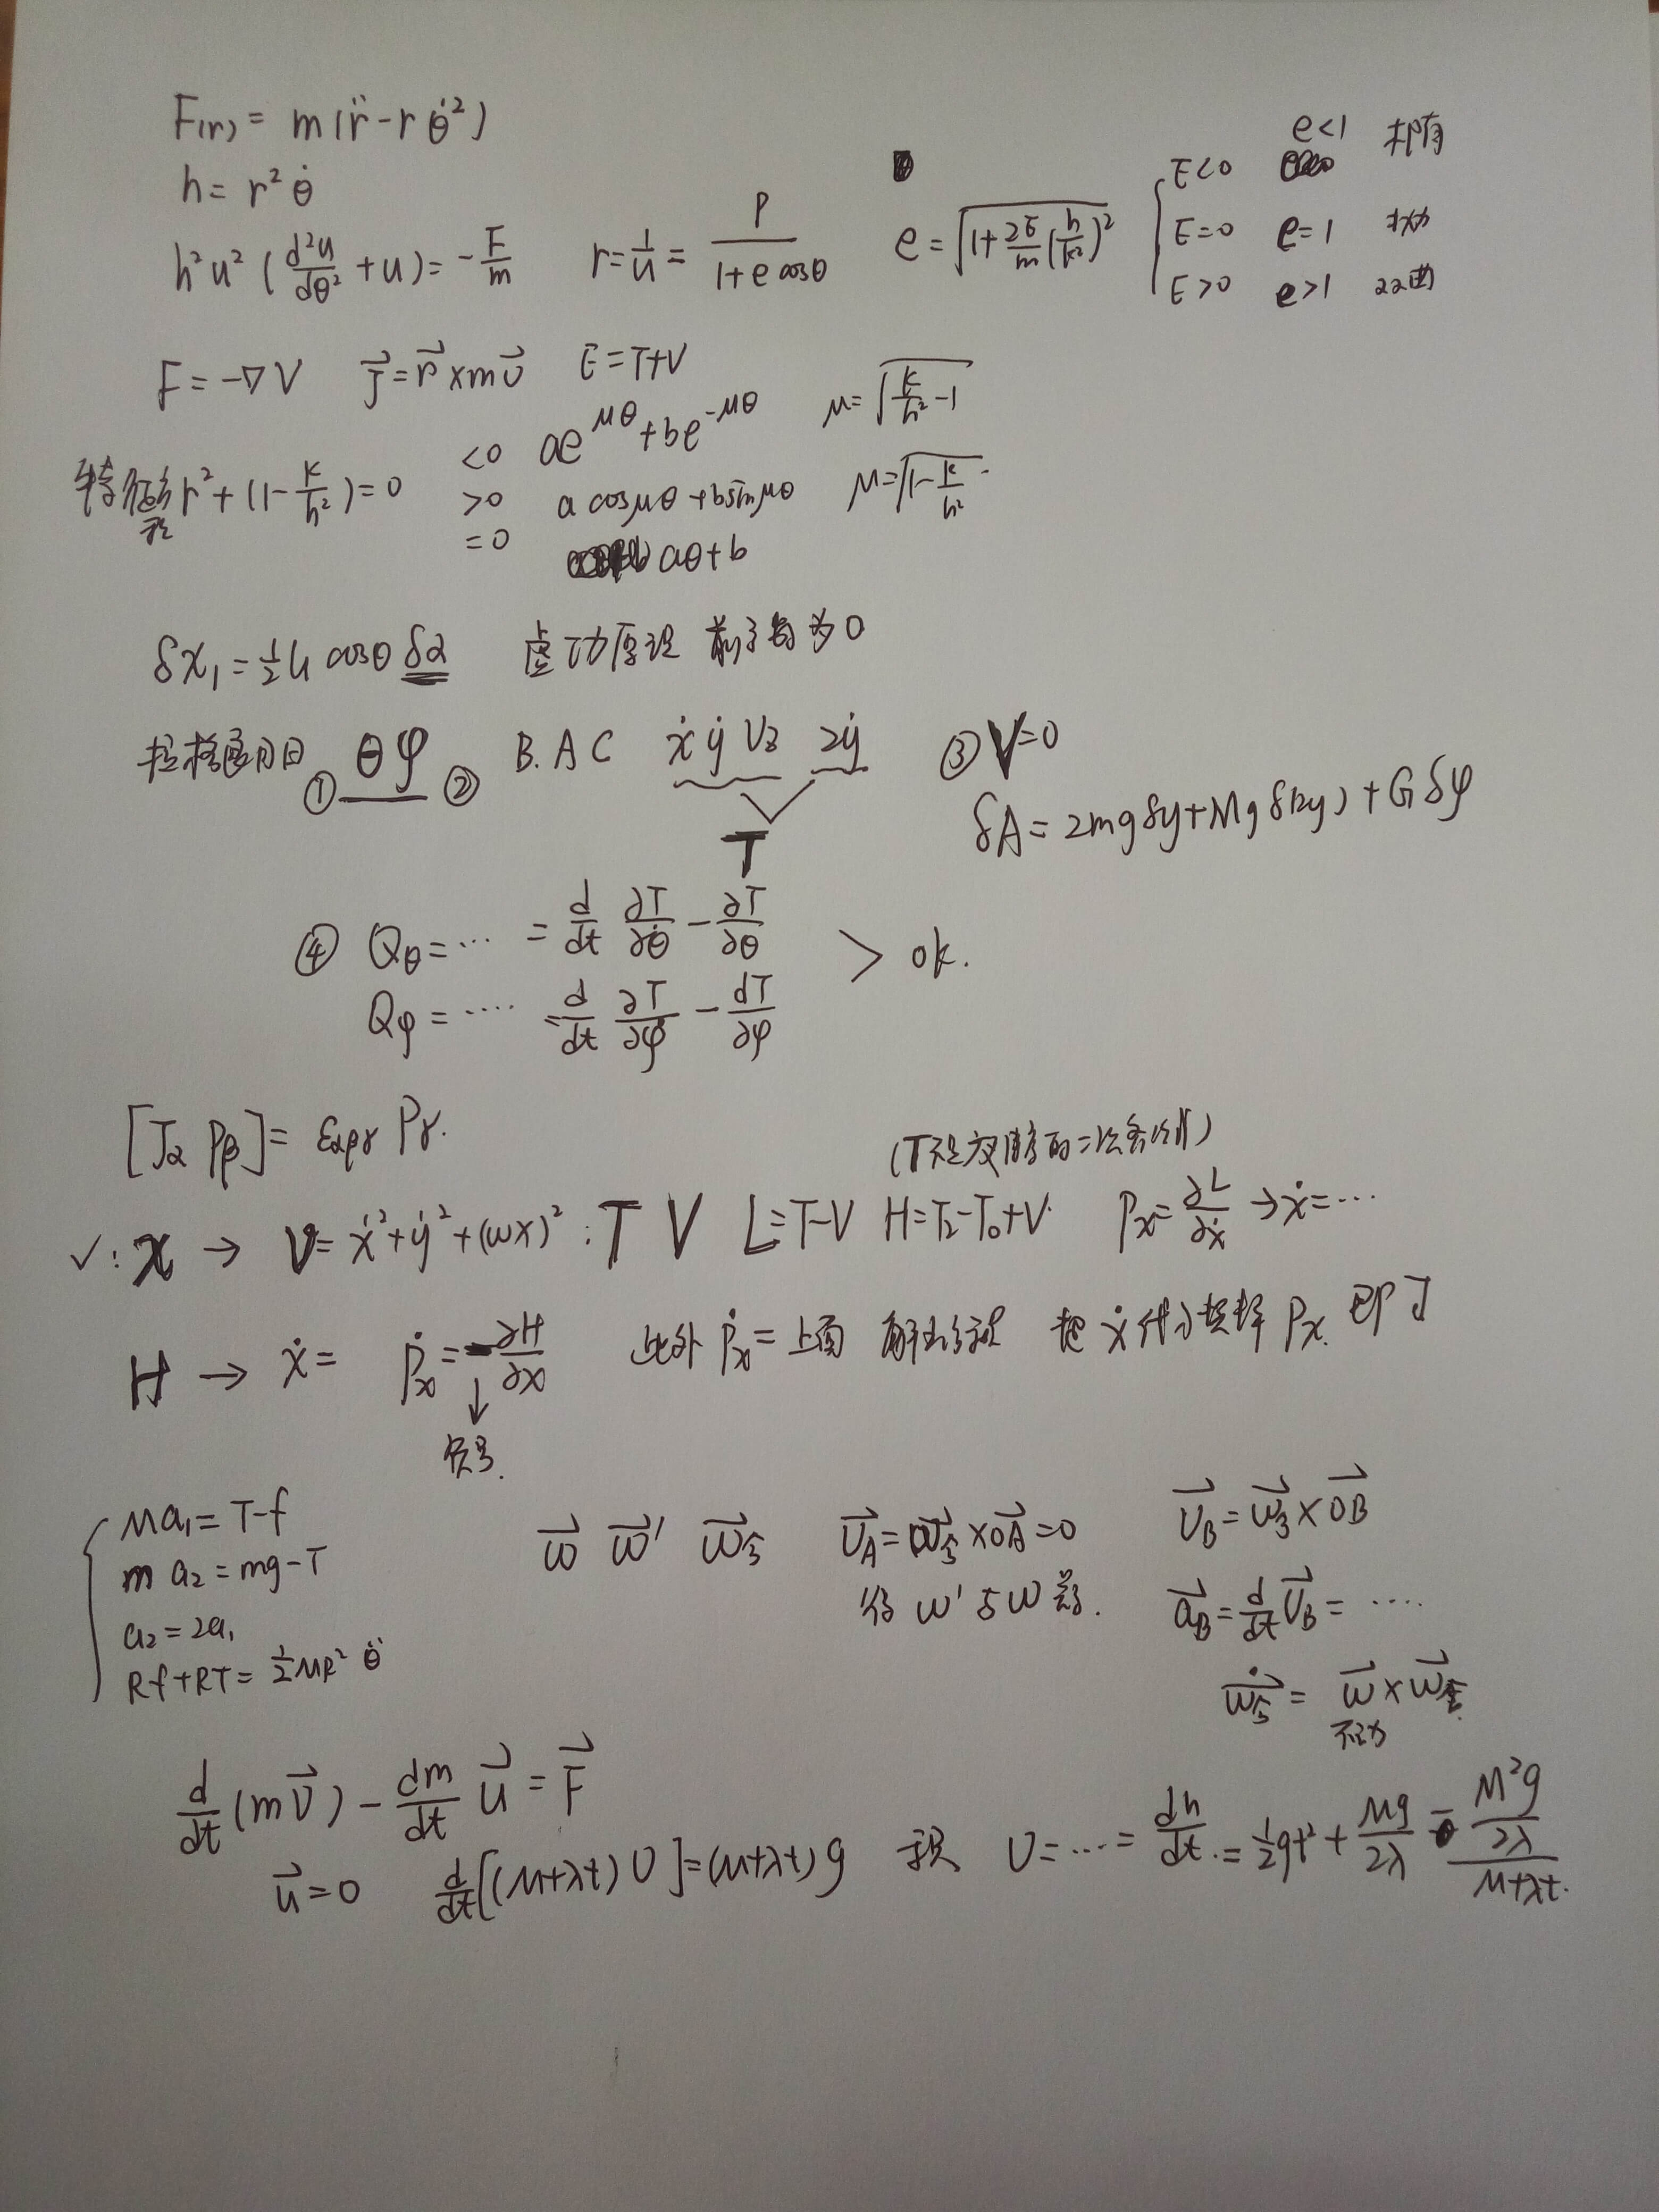 F(r) = m(r̈ - rθ̇²)
h = r²θ̇
h²u²(d²u/dθ² + u) = -F/m    r = 1/u = p/(1+e cosθ)    e = √(1+(2E/m)(h/k²)²)    { E<0 e<1
E=0 e=1 抛
E>0 e>1 双曲
F = -∇V    J⃗ = r⃗×mv⃗    E = T+V
特征方程 r² + (1 - k/h²) = 0    <0 ae^{μθ}+be^{-μθ}    μ = √(k/h² - 1)
>0 a cosμθ + b sinμθ    μ = √(1 - k/h²)
=0 aθ+b
δx₁ = ½ l₁ cosθ δα    虚功原理 前系数为0
拉格朗日 ① θφ ② B. A C ẋ ẏ v_B 2ẏ    ③ V=0
T    δA = 2mgδy + Mgδ(2y) + Gδφ
④ Q_θ = ⋯ = d/dt ∂T/∂θ̇ - ∂T/∂θ    > ok.
Q_φ = ⋯⋯ = d/dt ∂T/∂φ̇ - dT/∂φ
[J_α p_β] = ε_{αβγ} P_γ.
✓: x → V = ẋ²+ẏ²+(ωx)² : T V L=T-V H=T₂-T₀+V. p_x = ∂L/∂ẋ → ẋ = ⋯
H → ẋ =    ṗ_x = -∂H/∂x    此外 ṗ_x = 上面 把 ẋ 换掉 p_x. 即可
↓
负号.
{ Ma₁ = T-f
m a₂ = mg-T
a₂ = 2a₁
Rf+RT = ½MR² θ̈
ω⃗ ω⃗′ ω⃗_总    v⃗_A = ω⃗_总×OA⃗ = 0    v⃗_B = ω⃗_总×OB⃗
得 ω′与ω    a⃗_B = d/dt v⃗_B = ⋯⋯
ω⃗̇_总 = ω⃗×ω⃗_总
d/dt(mv⃗) - dm/dt u⃗ = F⃗
u⃗ = 0    d/dt[(M+λt)v] = (M+λt)g    积    v = ⋯ = dh/dt = ½gt + Mg/2λ - (M²g/2λ)/(M+λt).